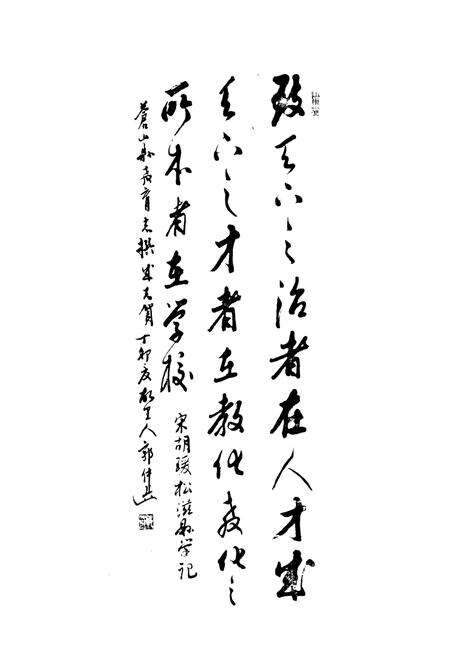 致天下之治者在人才成
天下之才者在教化教化之
所本者在学校
宋胡瑗松滋县学记
蒼山县教育志撰成志贺丁卯夏故里人郭仲